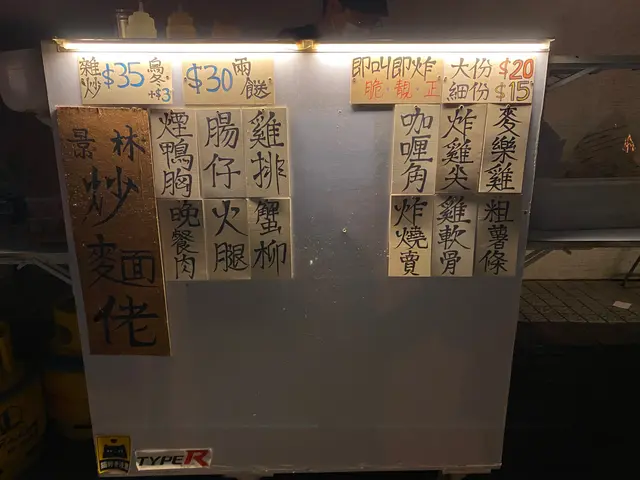 雜炒 $35 烏冬+$3
$30 兩餸
即叫即炸
脆·靚·正
大份 $20
細份 $15
景林
炒麵佬
煙鴨胸
腸仔
雞排
晚餐肉
火腿
蟹柳
咖喱角
炸雞尖
麥樂雞
炸燒賣
雞軟骨
粗薯條
TYPE R